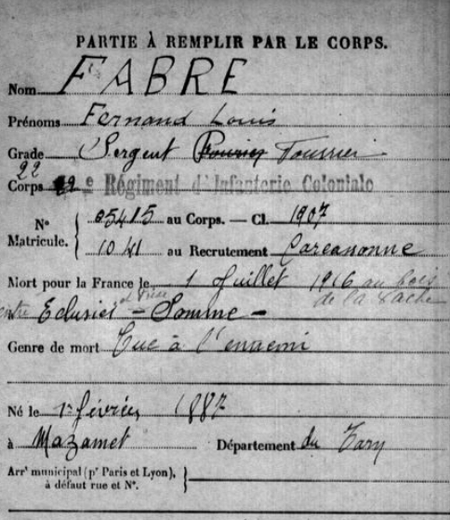 PARTIE À REMPLIR PAR LE CORPS.
Nom FABRE
Prénoms Fernand Louis
Grade Sergent Fourrier Fourrier
22
Corps 22e Régiment d'Infanterie Coloniale
No Matricule. { 05415 au Corps. — Cl. 1907
1041 au Recrutement Carcassonne
Mort pour la France le 1 Juillet 1916 au bois
de la Vache
entre Eclusier et Frise - Somme -
Genre de mort Tué à l'ennemi
Né le 1er février 1887
à Mazamet Département du Tarn
Arrt municipal (pr Paris et Lyon),
à défaut rue et No.